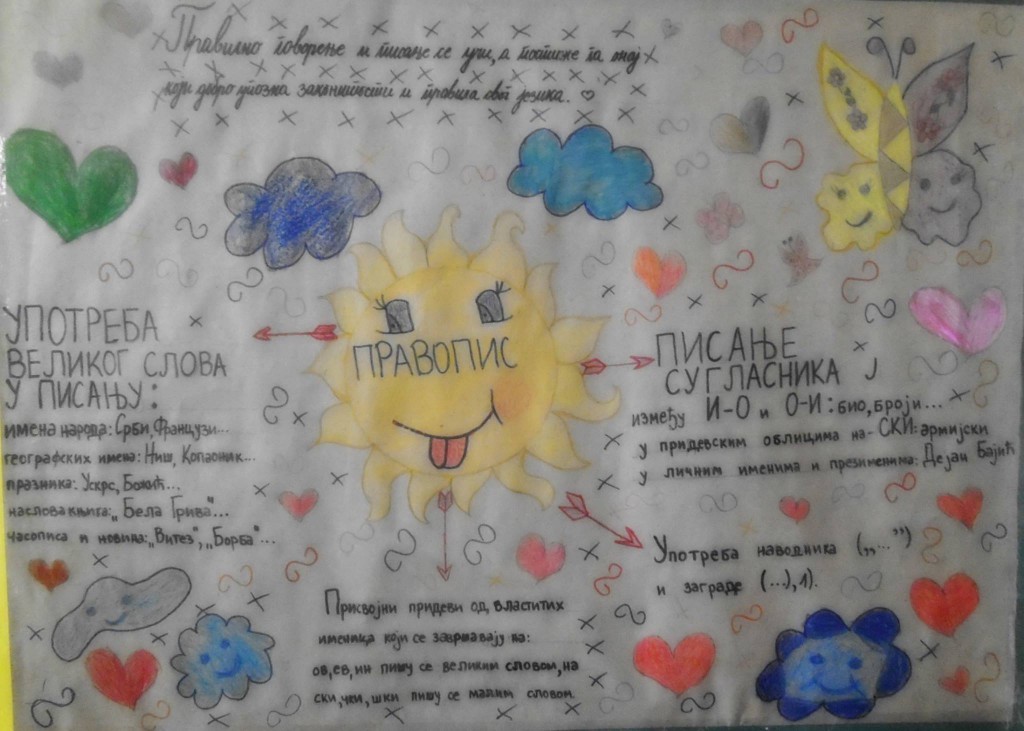 Правилно говорење и писање се учи, а постиже га онај
који добро упозна законитости и правила свог језика.
ПРАВОПИС
УПОТРЕБА
ВЕЛИКОГ СЛОВА
У ПИСАЊУ:
имена народа: Срби, Французи...
географских имена: Ниш, Копаоник...
празника: Ускрс, Божић...
наслова књига: „Бела Грива"...
часописа и новина: „Витез", „Борба"...
ПИСАЊЕ
СУГЛАСНИКА Ј
између И-О и О-И: био, броји...
у придевским облицима на - СКИ: армијски
у личним именима и презименима: Дејан Бајић
Употреба наводника („...")
и заграде (...), 1).
Присвојни придеви од властитих
именица који се завршавају на:
ов, ев, ин пишу се великим словом, на
ски, чки, шки пишу се малим словом.